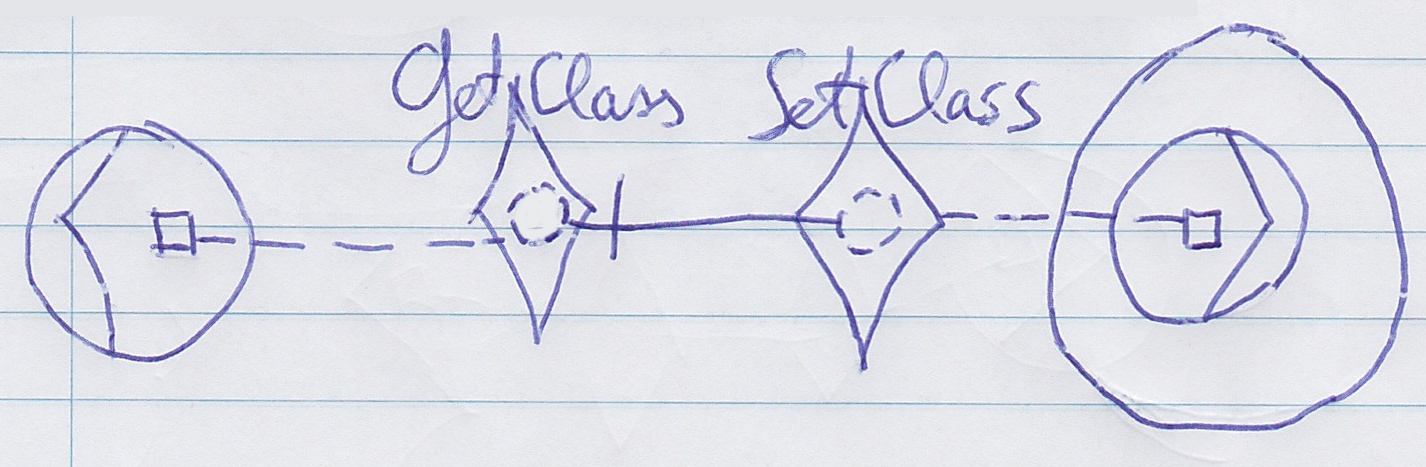 GetClass SetClass